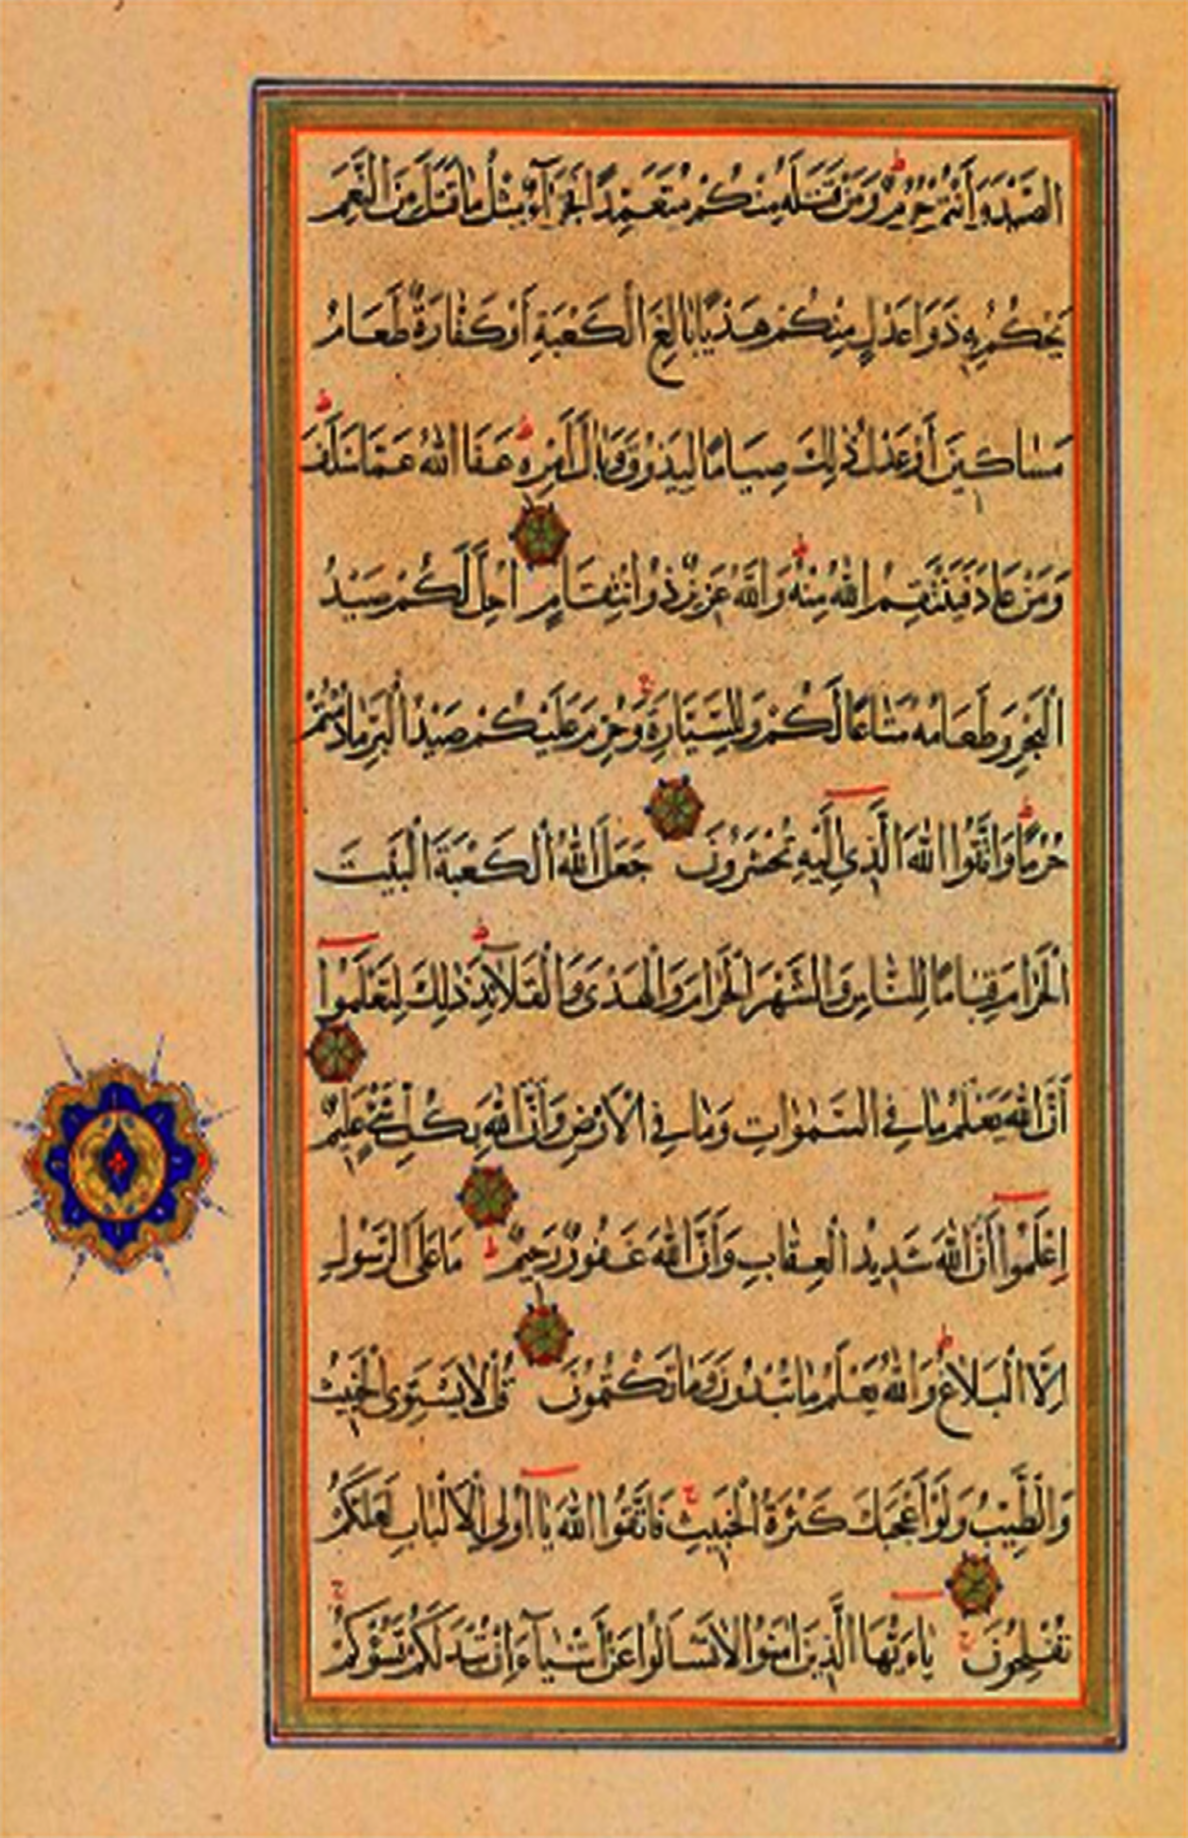 الصَّيْدَ وَأَنْتُمْ حُرُمٌ وَمَنْ قَتَلَهُ مِنْكُمْ مُتَعَمِّدًا فَجَزَآءٌ مِثْلُ مَا قَتَلَ مِنَ النَّعَمِ
يَحْكُمُ بِهِ ذَوَا عَدْلٍ مِنْكُمْ هَدْيًا بَالِغَ الْكَعْبَةِ أَوْ كَفَّارَةٌ طَعَامُ
مَسَاكِينَ أَوْ عَدْلُ ذٰلِكَ صِيَامًا لِيَذُوقَ وَبَالَ أَمْرِهِ عَفَا اللّٰهُ عَمَّا سَلَفَ
وَمَنْ عَادَ فَيَنْتَقِمُ اللّٰهُ مِنْهُ وَاللّٰهُ عَزِيزٌ ذُو انْتِقَامٍ اُحِلَّ لَكُمْ صَيْدُ
الْبَحْرِ وَطَعَامُهُ مَتَاعًا لَكُمْ وَلِلسَّيَّارَةِ وَحُرِّمَ عَلَيْكُمْ صَيْدُ الْبَرِّ مَا دُمْتُمْ
حُرُمًا وَاتَّقُوا اللّٰهَ الَّذِي اِلَيْهِ تُحْشَرُونَ جَعَلَ اللّٰهُ الْكَعْبَةَ الْبَيْتَ
الْحَرَامَ قِيَامًا لِلنَّاسِ وَالشَّهْرَ الْحَرَامَ وَالْهَدْىَ وَالْقَلَآئِدَ ذٰلِكَ لِتَعْلَمُوا
أَنَّ اللّٰهَ يَعْلَمُ مَا فِي السَّمٰوَاتِ وَمَا فِي الْاَرْضِ وَأَنَّ اللّٰهَ بِكُلِّ شَيْءٍ عَلِيمٌ
اِعْلَمُوا أَنَّ اللّٰهَ شَدِيدُ الْعِقَابِ وَأَنَّ اللّٰهَ غَفُورٌ رَحِيمٌ مَا عَلَى الرَّسُولِ
اِلَّا الْبَلَاغُ وَاللّٰهُ يَعْلَمُ مَا تُبْدُونَ وَمَا تَكْتُمُونَ قُلْ لَا يَسْتَوِى الْخَبِيثُ
وَالطَّيِّبُ وَلَوْ أَعْجَبَكَ كَثْرَةُ الْخَبِيثِ فَاتَّقُوا اللّٰهَ يَا اُولِى الْاَلْبَابِ لَعَلَّكُمْ
تُفْلِحُونَ يَاءَيُّهَا الَّذِينَ اٰمَنُوا لَا تَسْاَلُوا عَنْ أَشْيَآءَ اِنْ تُبْدَ لَكُمْ تَسُؤْكُمْ